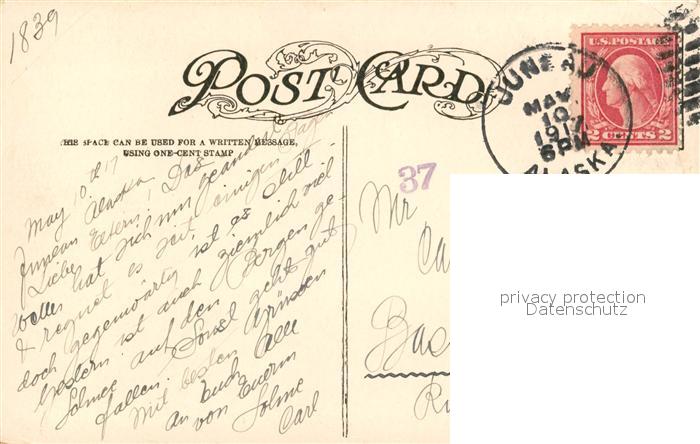 1839
POST CARD
THIS SPACE CAN BE USED FOR A WRITTEN MESSAGE,
USING ONE-CENT STAMP
JUNEAU
MAY
10
1917
6PM
ALASKA
U.S. POSTAGE
2 CENTS 2
37
May 10th 17
Juneau Alaska
Liebe Eltern! Das
Wetter hat sich nun geändert
& regnet es seit einigen Tagen
doch gegenwärtig ist es still
Gestern ist auch ziemlich viel
Schnee auf den Bergen ge-
fallen. Sonst geht gut
Mit besten Grüssen
an Euch Alle
von Euerm
Sohne
Carl
Mr
Ca
Bas
privacy protection
Datenschutz